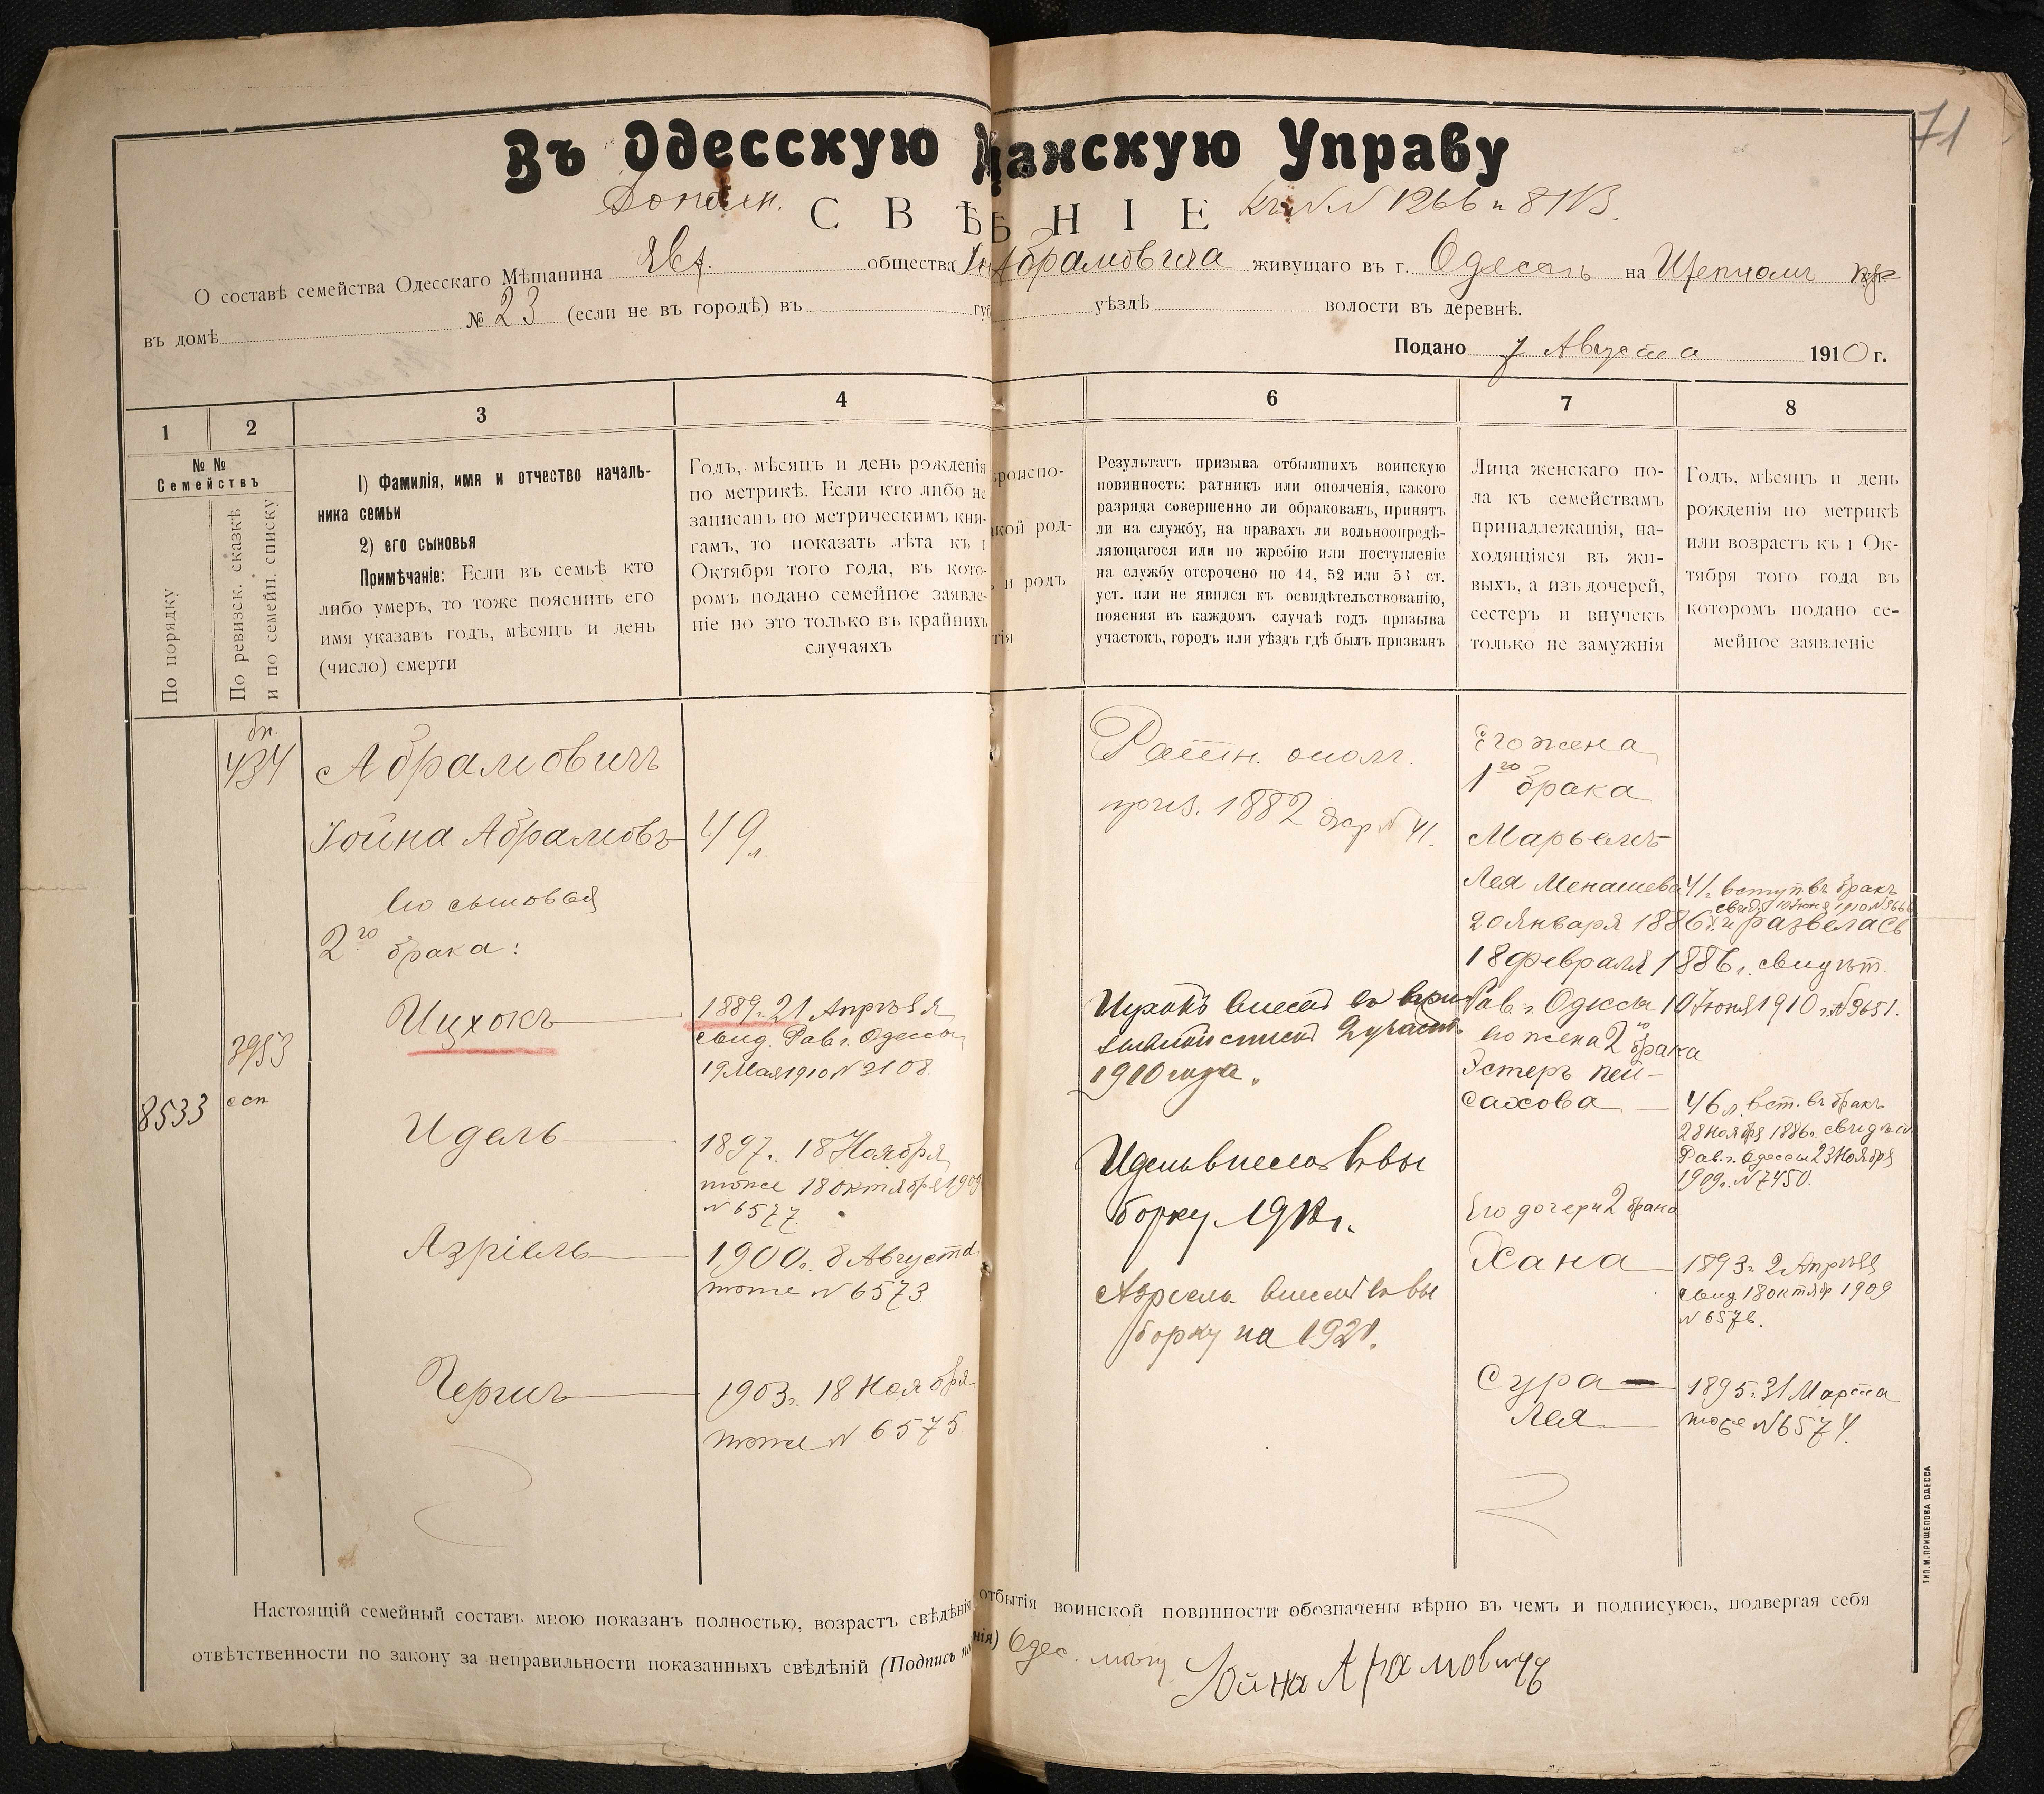 71
Въ Одесскую щанскую Управу
Дополн. СВѢ НІЕ къ №№ 1266 и 8113.
О составѣ семейства Одесскаго Мѣщанина Евр. общества Абрамовича живущаго въ г. Одессѣ на Щепномъ
въ домѣ № 23 (если не въ городѣ) въ уѣздѣ волости въ деревнѣ.
Подано 7 Августа 1910 г.
1 2 3 4 6 7 8
№ №
Семействъ
По порядку
По ревизск. сказкѣ
и по семейн. списку
1) Фамилія, имя и отчество началь-
ника семьи
2) его сыновья
Примѣчаніе: Если въ семьѣ кто
либо умеръ, то тоже пояснить его
имя указавъ годъ, мѣсяцъ и день
(число) смерти
Годъ, мѣсяцъ и день рожденія
по метрикѣ. Если кто либо не
записанъ по метрическимъ кни-
гамъ, то показать лѣта къ 1
Октября того года, въ кото-
ромъ подано семейное заявле-
ніе но это только въ крайнихъ
случаяхъ
роиспо-
кой род-
и родъ
тія
Результатъ призыва отбывшихъ воинскую
повинность: ратникъ или ополченія, какого
разряда совершенно ли обракованъ, принятъ
ли на службу, на правахъ ли вольноопредѣ-
ляющагося или по жребію или поступленіе
на службу отсрочено по 44, 52 или 53 ст.
уст. или не явился къ освидѣтельствованію,
поясняя въ каждомъ случаѣ годъ призыва
участокъ, городъ или уѣздъ гдѣ былъ призванъ
Лица женскаго по-
ла къ семействамъ
принадлежащія, на-
ходящіяся въ жи-
выхъ, а изъ дочерей,
сестеръ и внучекъ
только не замужнія
Годъ, мѣсяцъ и день
рожденія по метрикѣ
или возрастъ къ 1 Ок-
тября того года въ
которомъ подано се-
мейное заявленіе
434
3953
8533
Абрамовичъ
Іойна Абрамовъ 49 л.
Его сыновья
2го брака:
Ицхокъ 1889 г. 21 Апрѣля
свид. Рав. г. Одессы
19 Мая 1910 № 2108.
Идель 1897 г. 18 Ноября
тоже 18 октября 1909
№ 6577
Азріель 1900 г. 8 Августа
тоже № 6573
Герши 1903 г. 18 Ноября
тоже № 6575
Ратн. ополч.
приз. 1882 жр № 41.
Ицхокъ внесенъ въ призы-
вной списокъ 2 участ.
1910 года.
Идель внесенъ въ вы
борку 1918 г.
Азріель внесенъ въ вы
борку на 1921.
Его жена
1го брака
Марьемъ-
Лея Менашева 41 г. вступ. въ бракъ
свид. 10 Іюня 1910 № 3666
20 Января 1886 г. и развелась
18 февраля 1886 г. свидѣт.
Рав. г. Одессы 10 Іюня 1910 г. № 3651.
Его жена 2го брака
Эстеръ Пей-
сахова 46 л. вст. въ бракъ
28 Ноября 1886 г. свидѣт.
Рав. г. Одессы 23 Ноября
1909 г. № 7450.
Его дочери 2 брака
Хана 1893 г. 2 Апрѣля
свид 18 октяб 1909
№ 6576.
Сура 1895 г. 31 Марта
Лея тоже № 6574.
Настоящій семейный составъ мною показанъ полностью, возрастъ свѣдѣнія отбытія воинской повинности обозначены вѣрно въ чемъ и подписуюсь, подвергая себя
отвѣтственности по закону за неправильности показанныхъ свѣдѣній (Подпись нія) Одес. мѣщ Іойна Абрамовичъ
ТИП. М. ПРИЩЕПОВА ОДЕССА